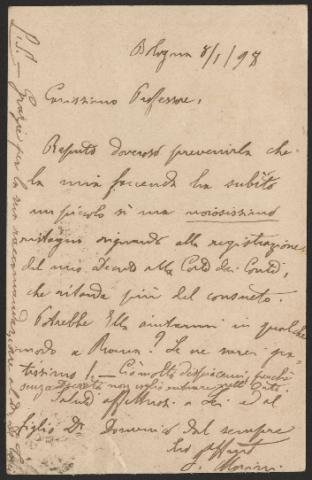 Bologna 8/1/98
Carissimo Professore,
Reputo doveroso prevenirla che
la mia faccenda ha subìto
un piccolo sì ma noiosissimo
ristagno riguardo alla registrazione
del mio Decreto alla Corte dei Conti,
che ritarda più del consueto.
Potrebbe Ella aiutarmi in qualche
modo a Roma? Le ne sarei gra-
tissimo! — Ciò molto dispiacemi, perchè
senza Decreto non voglio entrare nell'
Saluti affettuosi a Lei ed al
figlio Dr. Domenico dal sempre
suo
P.S. — Grazie per la sua raccomandazione al Dr.